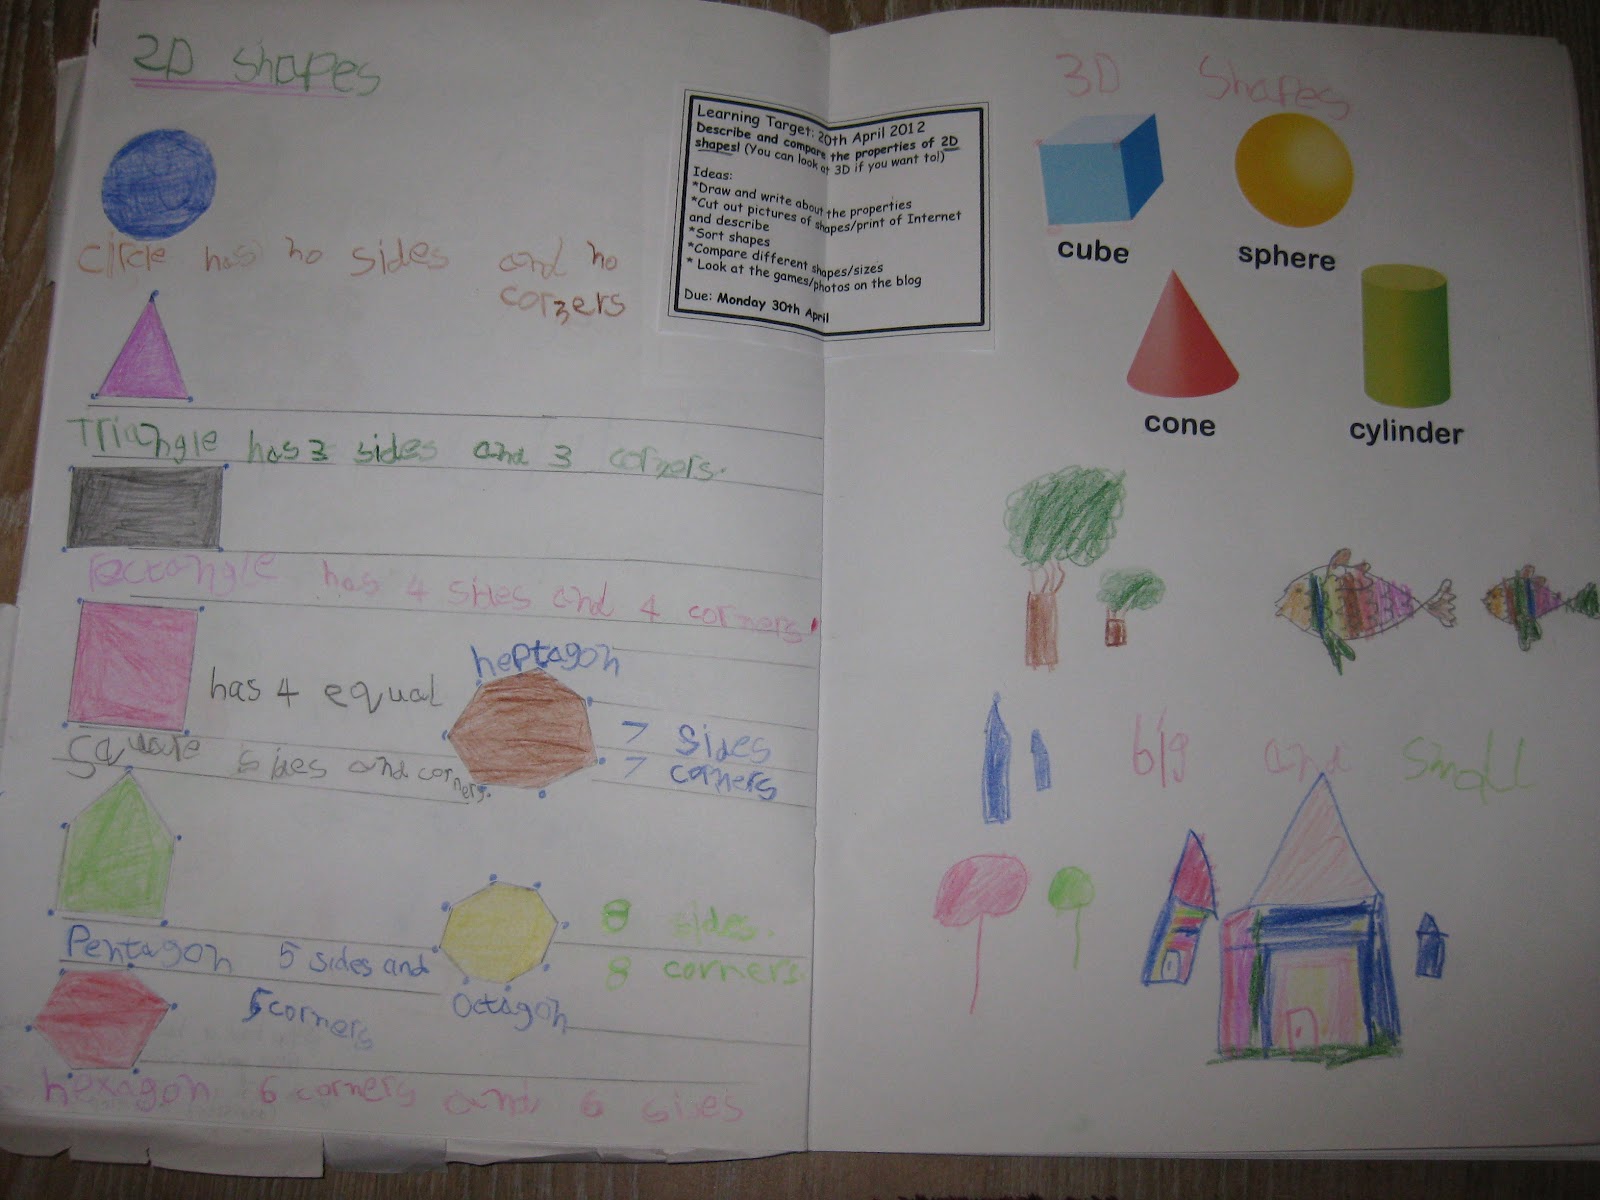 2D shapes
circle has no sides and no
corners
Triangle has 3 sides and 3 corners.
rectangle has 4 sides and 4 corners
has 4 equal
square sides and corners.
heptagon
7 sides
7 corners
Pentagon 5 sides and
5 corners
8 sides.
8 corners.
Octagon
hexagon 6 corners and 6 sides
Learning Target: 20th April 2012
Describe and compare the properties of 2D
shapes! (You can look at 3D if you want to!)
Ideas:
*Draw and write about the properties
*Cut out pictures of shapes/print of Internet
and describe
*Sort shapes
*Compare different shapes/sizes
* Look at the games/photos on the blog
Due: Monday 30th April
3D Shapes
cube
sphere
cone
cylinder
big and small